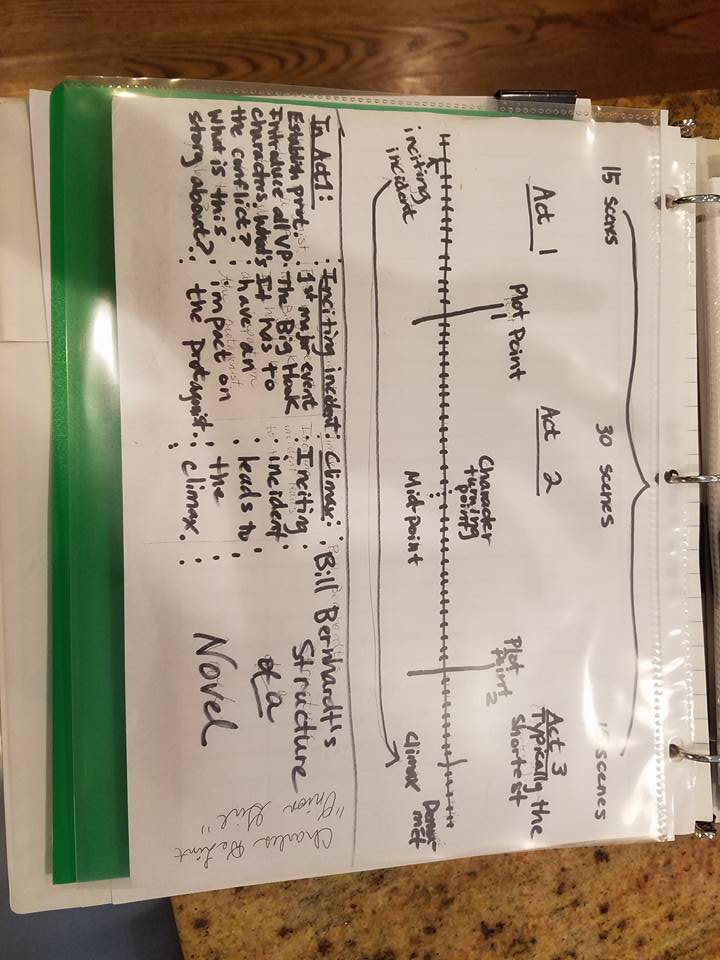 15 scenes
30 scenes
15 scenes
Act 1
Plot Point
1
Act 2
Character
turning
points
Plot
Point
2
Act 3
Typically the
Shortest
inciting
incident
Midpoint
Climax
Denoue
met
In Act 1:
Establish prot.
Introduce all VP
characters. What's
the conflict?
What is this
story about?
Inciting incident:
1st major event
The Big Hook
It has to
have an
impact on
the protagnist.
Climax:
Inciting
incident
leads to
the
climax.
Bill Bernhardt's
Structure
of a
Novel
Charles